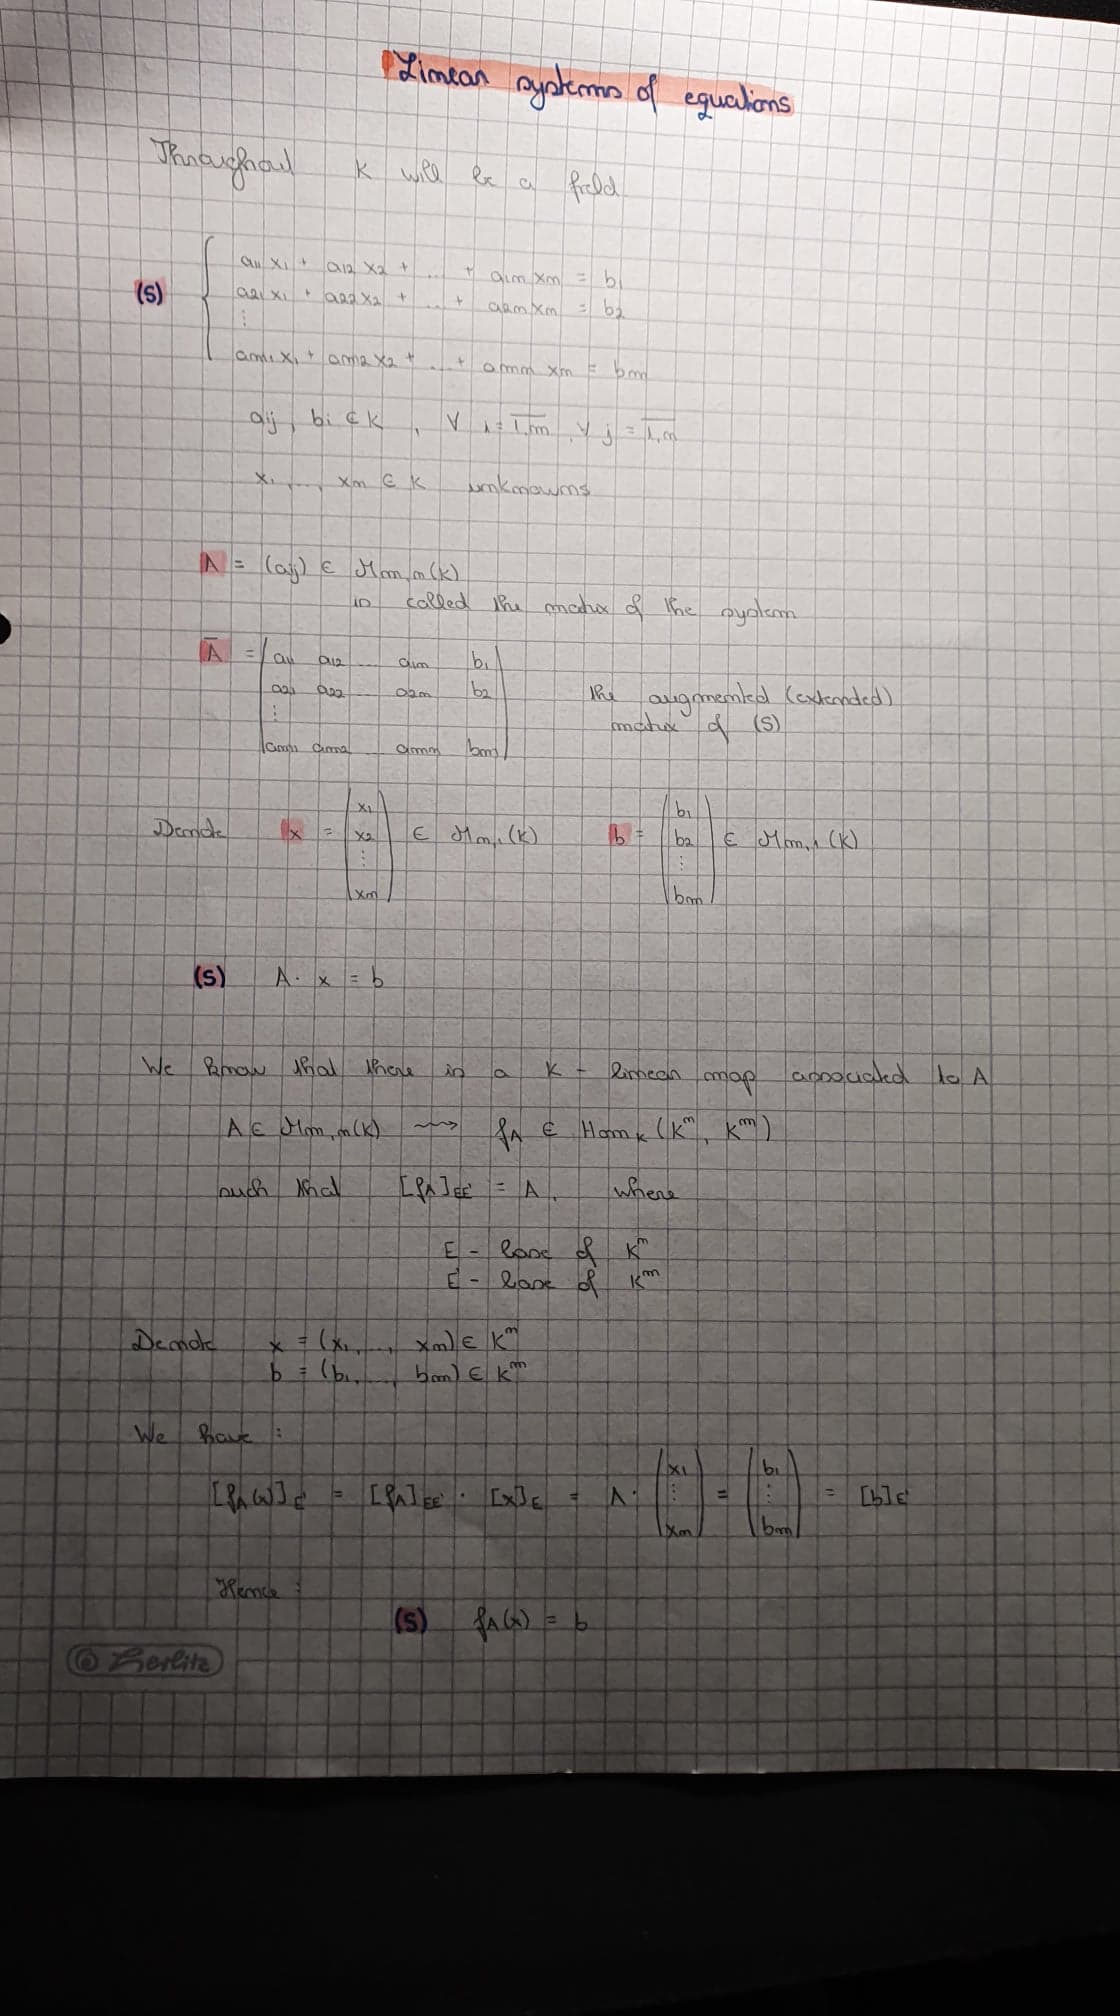 Linear systems of equations
Throughout K will be a field
(S) { a11 x1 + a12 x2 + ... + a1n xn = b1
a21 x1 + a22 x2 + ... + a2n xn = b2
⋮
am1 x1 + am2 x2 + ... + amn xn = bm
aij, bi ∈ K, ∀ i = \overline{1,m}, ∀ j = \overline{1,n}
x1, ..., xn ∈ K unknowns
A = (aij) ∈ Mm,n(K)
is called the matrix of the system
Ā = ( a11 a12 ... a1n b1
a21 a22 ... a2n b2
⋮
am1 am2 ... amn bm )
the augmented (extended)
matrix of (S)
Denote x = (x1 x2 ⋮ xn) ∈ Mn,1(K) b = (b1 b2 ⋮ bm) ∈ Mm,1(K)
(S) A · x = b
We know that there is a K - linear map associated to A
A ∈ Mm,n(K) ⇝ fA ∈ HomK(K^n, K^m)
such that [fA]EE' = A, where
E - base of K^n
E' - base of K^m
Denote x = (x1, ..., xn) ∈ K^n
b = (b1, ..., bm) ∈ K^m
We have :
[fA(x)]E' = [fA]EE' · [x]E = A · (x1 ⋮ xn) = (b1 ⋮ bm) = [b]E'
Hence :
(S) fA(x) = b
© Herlitz